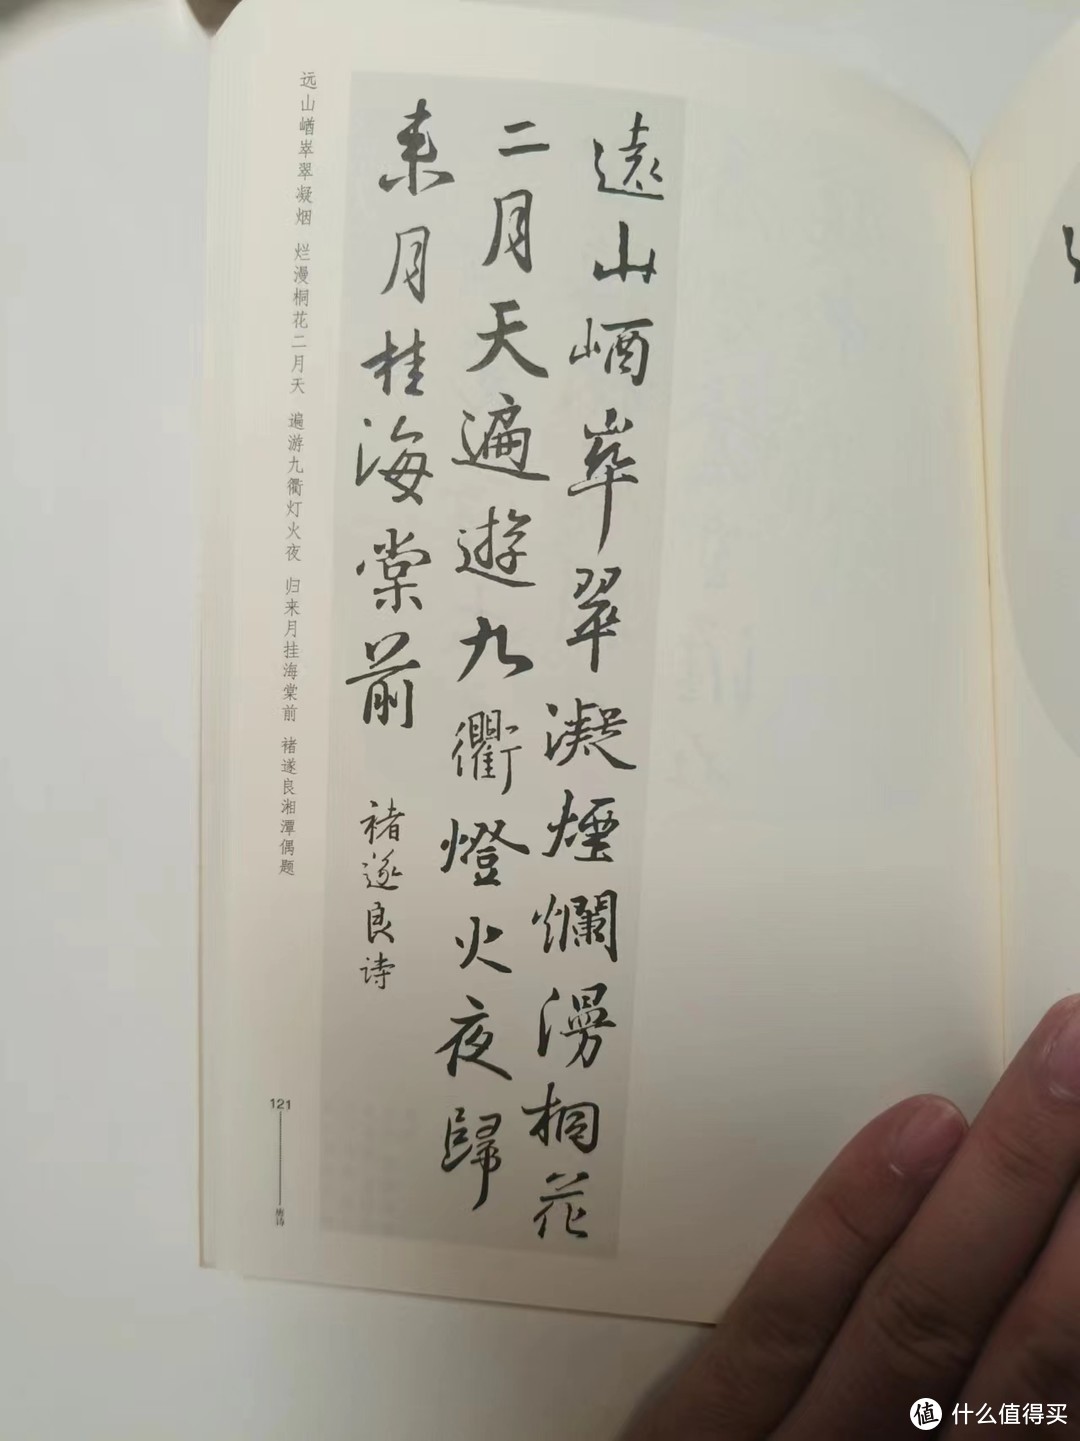 遠山崷崒翠凝煙爛漫桐花
二月天遍遊九衢燈火夜歸
来月挂海棠前
褚遂良诗
远山崷崒翠凝烟 烂漫桐花二月天 遍游九衢灯火夜 归来月挂海棠前 褚遂良湘潭偶题
121
唐诗
值 什么值得买